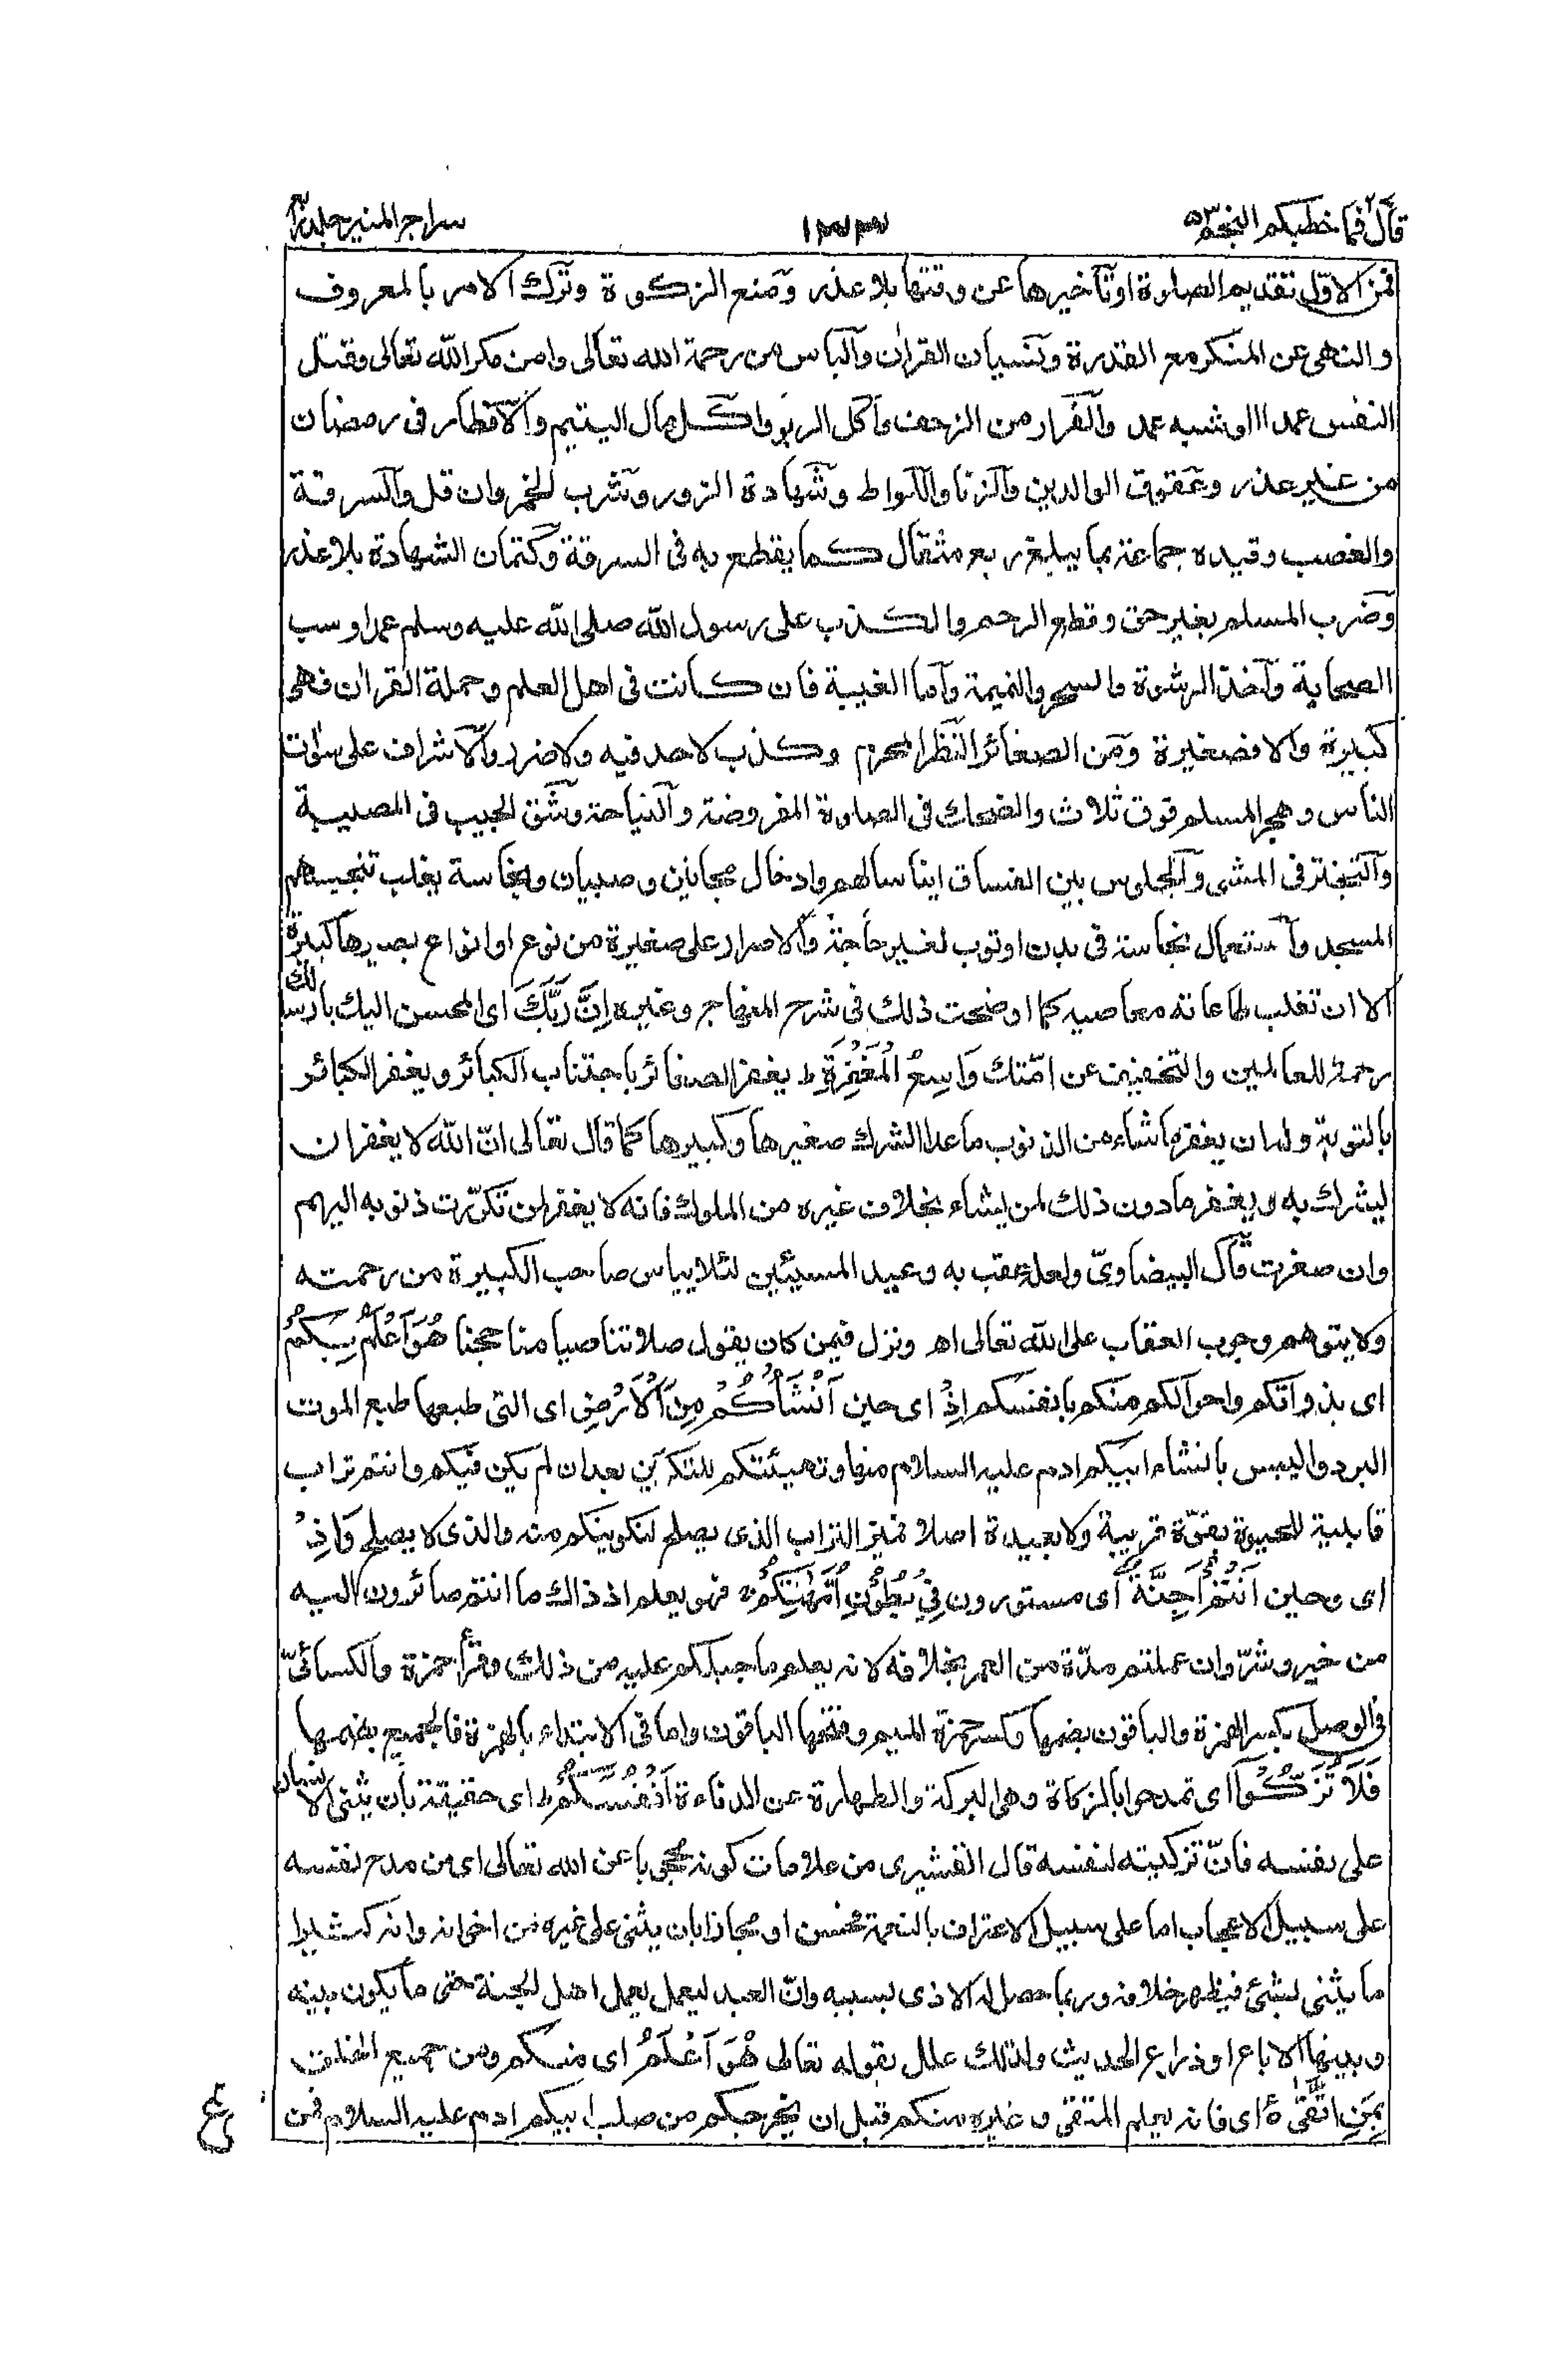 قال فما خطبكم النجم ٥٣
١٣٣
سراج المنير جلد
فمن الاوّل تقديم الصلوة او تأخيرها عن وقتها بلا عذر ومنع الزكوة وترك الامر بالمعروف
والنهى عن المنكر مع القدرة ونسيان القران والياس من رحمة الله تعالى وامن مكر الله تعالى وقتل
النفس عمدا او شبه عمد والفرار من الزحف واكل الربو واكل مال اليتيم والافطار فى رمضان
من غير عذر وعقوق الوالدين والزنا واللواط وشهادة الزور وشرب الخمر وان قل والسرقة
والغصب وقيده جماعة بما يبلغ ربع مثقال كما يقطع به فى السرقة وكتمان الشهادة بلا عذر
وضرب المسلم بغير حق وقطع الرحم والكذب على رسول الله صلى الله عليه وسلم عمدا وسب
الصحابة واخذ الرشوة والسحر والنميمة واما الغيبة فان كانت فى اهل العلم وحملة القران فهى
كبيرة والا فصغيرة ومن الصغائر النظر المحرم وكذب لا حد فيه ولا ضرر والاشراف على
الناس وهجر المسلم فوق ثلاث والضحك فى الصلوة المفروضة والنياحة وشق الجيب فى المصيبة
والتبختر فى المشى والجلوس بين الفساق ايناسا لهم وادخال مجانين وصبيان ونجاسة يغلب تنجيسهم
المسجد واستعمال نجاسة فى بدن او ثوب لغير حاجة والاصرار على صغيرة من نوع او انواع يصيرها كبيرة
الا ان تغلب طاعاته معاصيه كما اوضحت ذلك فى شرح المنهاج وغيره اِنَّ رَبَّكَ اى المحسن اليك بارسالك
رحمة للعالمين والتخفيف عن امّتك وَاسِعُ الْمَغْفِرَةِ ط يغفر الصغائر باجتناب الكبائر ويغفر الكبائر
بالتوبة وله ان يغفر ما شاء من الذنوب ما عدا الشرك صغيرها وكبيرها كما قال تعالى انّ الله لا يغفر ان
يشرك به ويغفر ما دون ذلك لمن يشاء بخلاف غيره من الملوك فانه لا يغفر لمن تكرّرت ذنوبه اليهم
وان صغرت قال البيضاوىّ ولعله عقب به وعيد المسيئين لئلا يياس صاحب الكبيرة من رحمته
ولا يتوهم وجوب العقاب على الله تعالى اه ونزل فيمن كان يقول صلاتنا صيامنا حجنا هُوَ اَعْلَمُ بِكُمْ
اى بذواتكم واحوالكم منكم بانفسكم اِذْ اى حين اَنْشَاَكُمْ مِنَ الْاَرْضِ اى التى طبعها طبع الموت
البرد واليبس بانشاء ابيكم ادم عليه السلام منها وتهيئتكم للتكوين بعد ان لم يكن فيكم وانتم تراب
قابلية للحيوة بقوّة قريبة ولا بعيدة اصلا فميز التراب الذى يصلح لتكوينكم منه والذى لا يصلح وَاِذْ
اى وحين اَنْتُمْ اَجِنَّةٌ اى مستورون فِىْ بُطُوْنِ اُمَّهٰتِكُمْ فهو يعلم اذ ذاك ما انتم صائرون اليه
من خير وشرّ وان عملتم مدّة من العمر بخلافه لانه يعلم ما جبلكم عليه من ذلك وقرأ حمزة والكسائىّ
فى الوصل بكسر الهمزة والباقون بضمها وكسر حمزة الميم وفتحها الباقون واما فى الابتداء بالهمزة فالجميع بضمها
فَلَا تُزَكُّوْا اى تمدحوا بالزكاة وهى البركة والطهارة عن الدناءة اَنْفُسَكُمْ ط اى حقيقة بأن يثنى الانسان
على نفسه فانّ تزكيته لنفسه قال القشيرى من علامات كونه محجوبا عن الله تعالى اى من مدح نفسه
على سبيل الاعجاب اما على سبيل الاعتراف بالنعمة فحسن او مجازا بان يثنى على غيره من اخوانه وانه كثيرا
ما يثنى بشئ فيظهر خلافه وربما حصل له الاذى بسببه وانّ العبد ليعمل بعمل اهل الجنة حتى ما يكون بينه
وبينها الا باع او ذراع الحديث ولذلك علل بقوله تعالى هُوَ اَعْلَمُ اى منكم ومن جميع الخلق
بِمَنِ اتَّقٰى اى فانه يعلم المتقى وغيره منكم قبل ان يخرجكم من صلب ابيكم ادم عليه السلام فمن
ع